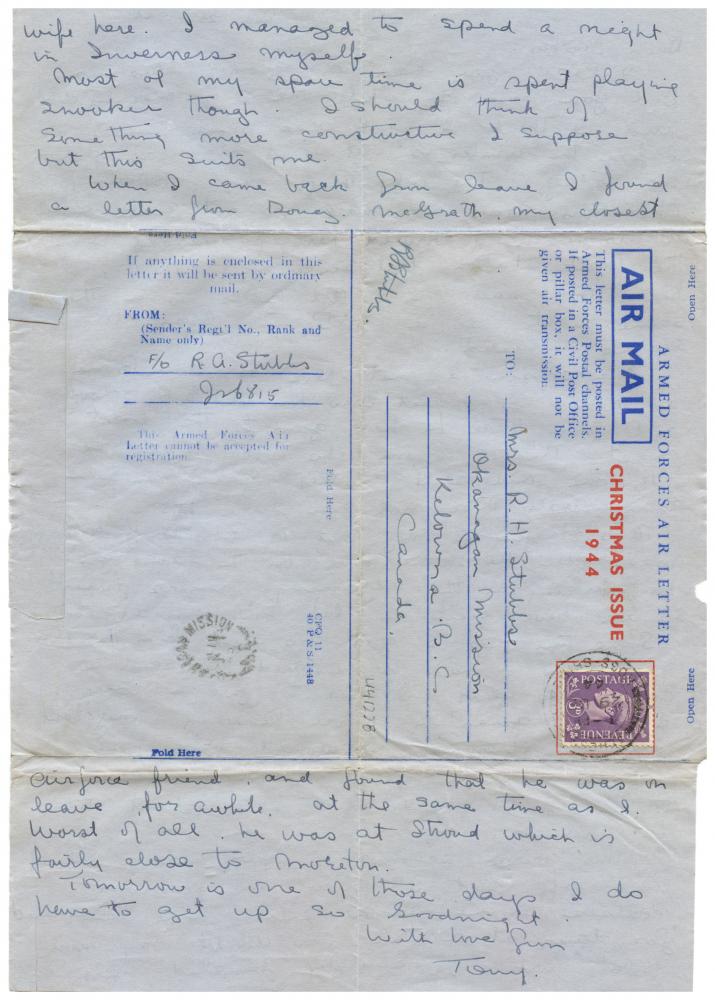 wife here. I managed to spend a night
in Inverness myself.
Most of my spare time is spent playing
snooker though. I should think of
something more constructive I suppose
but this suits me.
When I came back from leave I found
a letter from Doug. McGrath. my closest
If anything is enclosed in this
letter it will be sent by ordinary
mail.
FROM:
(Sender's Reg't'l No., Rank and
Name only)
F/O R.A. Stubbs
J26815
This Armed Forces Air
Letter cannot be accepted for
registration.
Fold Here
CPQ 11
40 P & S 1448
MISSION
Fold Here
Open Here
Open Here
ARMED FORCES AIR LETTER
AIR MAIL
CHRISTMAS ISSUE
1944
This letter must be posted in
Armed Forces Postal channels.
If posted in a Civil Post Office
or pillar box, it will not be
given air transmission.
POSTAGE
3D
REVENUE
TO:
Mrs. R. H. Stubbs
Okanagan Mission
Kelowna B.C.
Canada.
RAStubbs.
441228
airforce friend, and found that he was on
leave for awhile, at the same time as I.
Worst of all, he was at Stroud which is
fairly close to Moreton.
Tomorrow is one of those days I do
have to get up so Goodnight.
With love from
Tony.